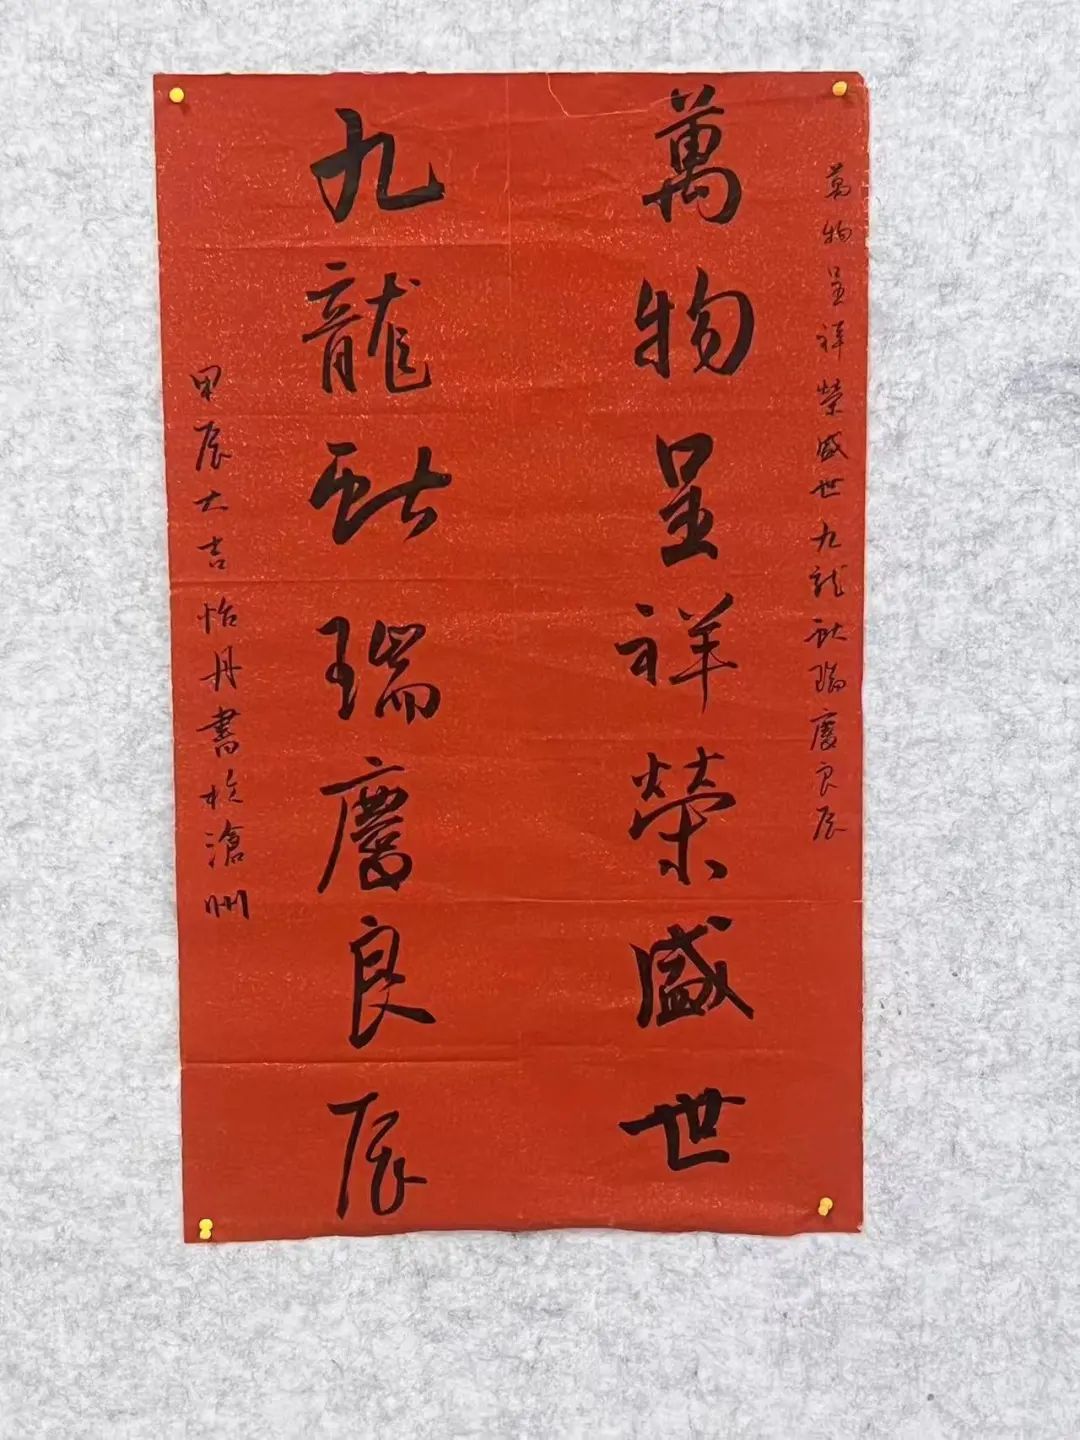 萬物呈祥榮盛世九龍獻瑞慶良辰
萬物呈祥榮盛世
九龍獻瑞慶良辰
甲辰大吉怡丹書於滄州